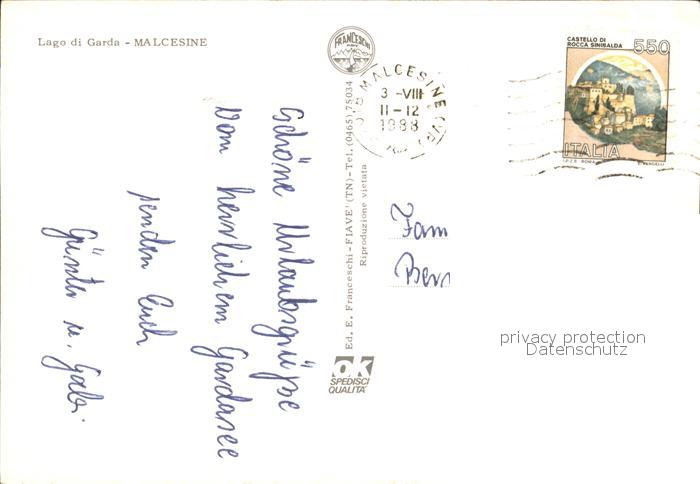 Lago di Garda - MALCESINE
FRANCESCHI
Schöne Urlaubsgrüße
vom herrlichem Gardasee
senden Euch
Günter u. Gabi.
Ed. E. Franceschi - FIAVE' (TN) - Tel. (0465) 75034
Riproduzione vietata
OK
SPEDISCI
QUALITA'
MALCESINE (VR)
3 -VIII
11-12
1988
CASTELLO DI
ROCCA SINIBALDA
550
ITALIA
I.P.Z.S. ROMA
Fam
Ber
privacy protection
Datenschutz